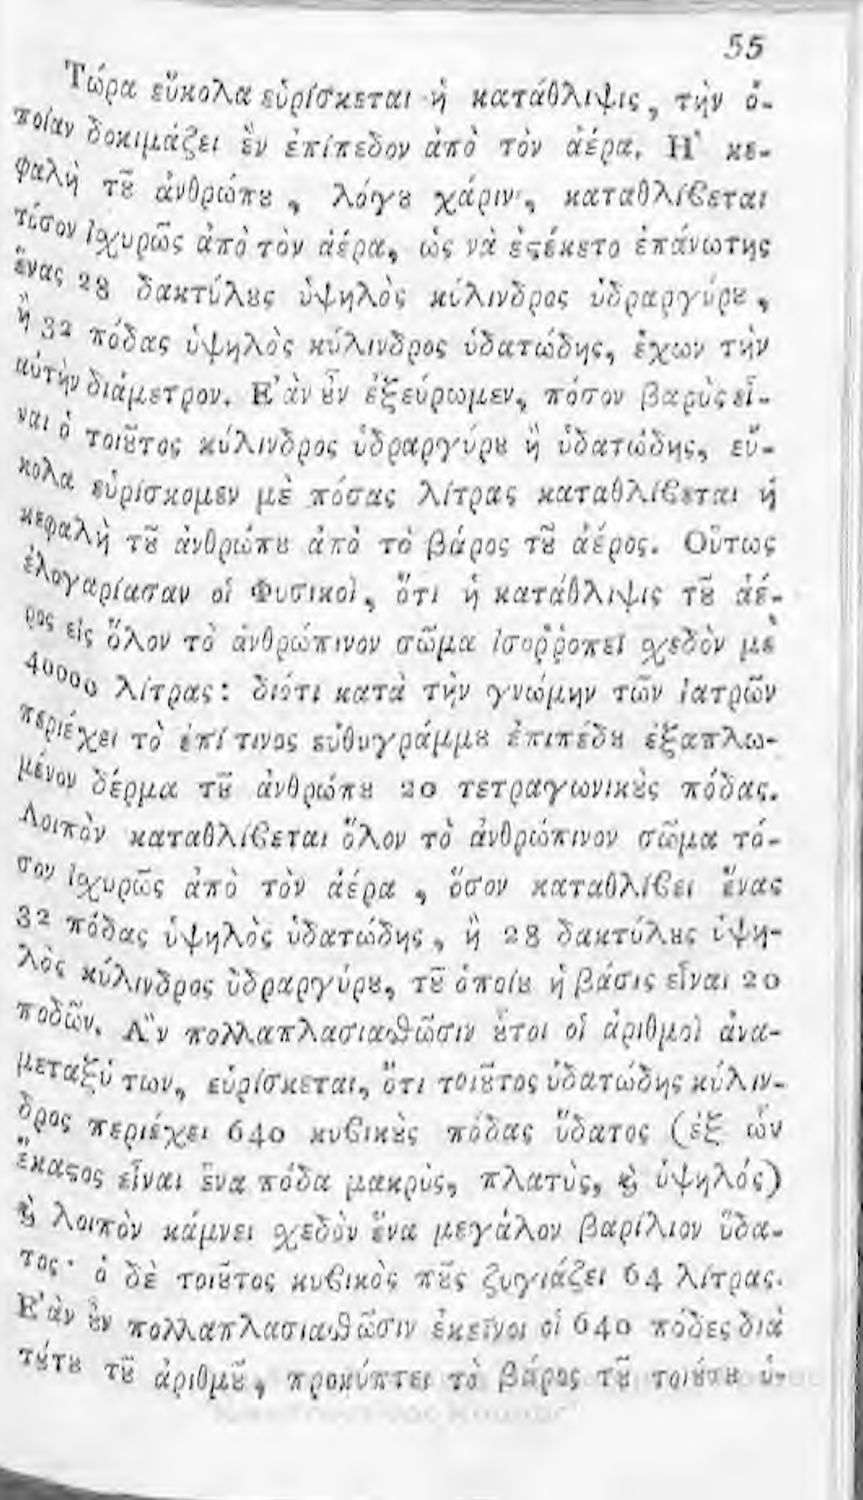 55
Τώρα εὔκολα εὑρίσκεται ἡ κατάθλιψις, τὴν ὁ-
ποίαν δοκιμάζει ἓν ἐπίπεδον ἀπὸ τὸν ἀέρα. Η῾ κε-
φαλὴ τȣ͂ ἀνθρώπȣ, λόγȣ χάριν, καταθλίβεται
τόσον ἰχυρῶς ἀπὸ τὸν ἀέρα, ὡς νὰ ἐϛέκετο ἐπάνωτης
ἕνας 28 δακτύλȣς ὑψηλὸς κύλινδρος ὑδραργύρȣ,
ἢ 32 πόδας ὑψηλὸς κύλινδρος ὑδατώδης, ἔχων τὴν
αὐτὴν διάμετρον. Ε᾿ὰν ȣ̓͂ν ἐξεύρωμεν, πόσον βαρὺς εἶ-
ναι ὁ τοιȣ͂τος κύλινδρος ὑδραργύρȣ ἢ ὑδατώδης, εὔ-
κολα εὑρίσκομεν μὲ πόσας λίτρας καταθλίβεται ἡ
κεφαλὴ τȣ͂ ἀνθρώπȣ ἀπὸ τὸ βάρος τȣ͂ ἀέρος. Οὕτως
ἐλογαρίασαν οἱ Φυσικοὶ, ὅτι ἡ κατάθλιψις τȣ͂ ἀέ-
ρος εἰς ὅλον τὸ ἀνθρώπινον σῶμα ἰσοῤῥοπεῖ χεδὸν μὲ
40000 λίτρας: διότι κατὰ τὴν γνώμην τῶν ἰατρῶν
περιέχει τὸ ἐπί τινος εὐθυγράμμȣ ἐπιπέδȣ ἐξαπλω-
μένον δέρμα τȣ͂ ἀνθρώπȣ 20 τετραγωνικȣ̀ς πόδας.
Λοιπὸν καταθλίβεται ὅλον τὸ ἀνθρώπινον σῶμα τό-
σον ἰχυρῶς ἀπὸ τὸν ἀέρα, ὅσον καταθλίβει ἕνας
32 πόδας ὑψηλὸς ὑδατώδης, ἢ 28 δακτύλȣς ὑψη-
λὸς κύλινδρος ὑδραργύρȣ, τȣ͂ ὁποίȣ ἡ βάσις εἶναι 20
ποδῶν. Α῍ν πολλαπλασιαϑῶσιν ȣ̔͂τοι οἱ ἀριθμοὶ ἀνα-
μεταξύ των, εὑρίσκεται, ὅτι τοιȣ͂τος ὑδατώδης κύλιν-
δρος περιέχει 640 κυβικȣ̀ς πόδας ὕδατος (ἐξ ὧν
ἕκαϛος εἶναι ἕνα πόδα μακρὺς, πλατὺς, ϗ̀ ὑψηλός)
ϗ̀ λοιπὸν κάμνει χεδὸν ἕνα μεγάλον βαρίλιον ὕδα-
τος· ὁ δὲ τοιȣ͂τος κυβικὸς πȣ͂ς ζυγιάζει 64 λίτρας.
Ε᾿ὰν ȣ̓͂ν πολλαπλασιαϑῶσιν ἐκεῖνοι οἱ 640 πόδες διὰ
τȣ́τȣ τȣ͂ ἀριθμȣ͂, προκύπτει τὸ βάρος τȣ͂ τοιȣ́τȣ ὑ-